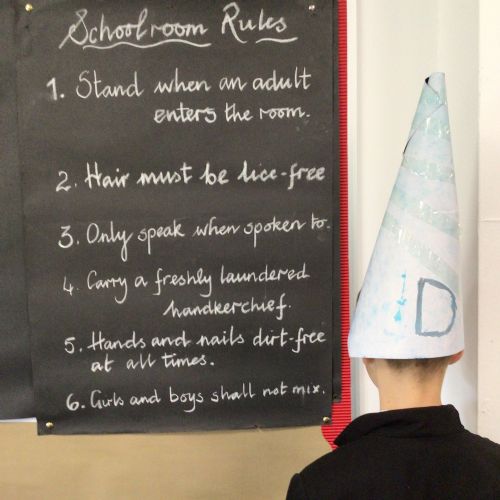 Schoolroom Rules
1. Stand when an adult
enters the room.
2. Hair must be lice-free
3. Only speak when spoken to.
4. Carry a freshly laundered
handkerchief.
5. Hands and nails dirt-free
at all times.
6. Girls and boys shall not mix.
D